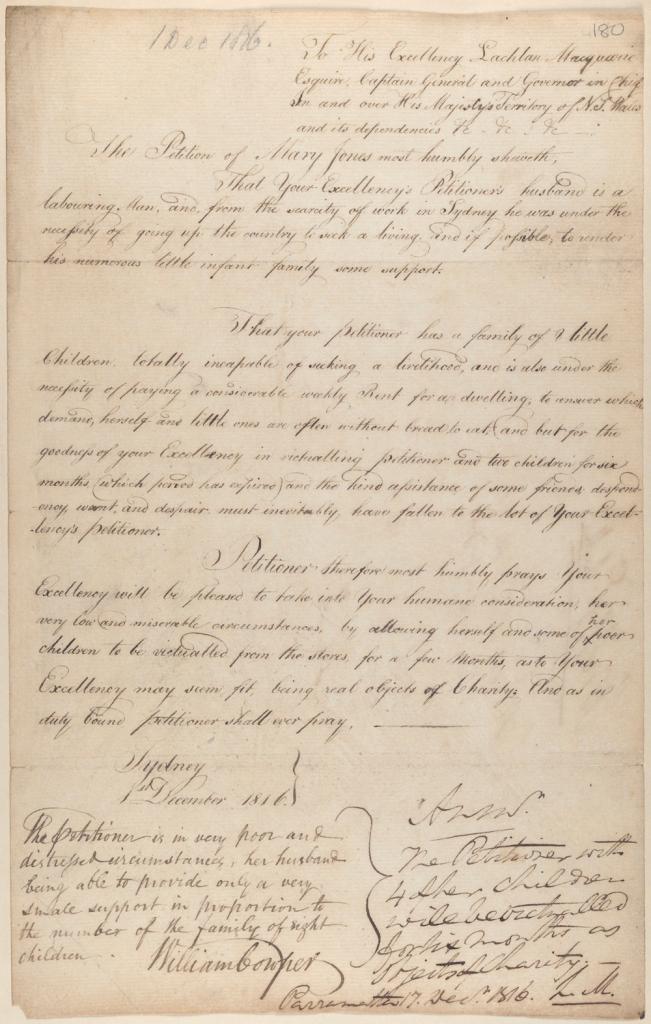 180
1 Dec 1816.
To His Excellency Lachlan Macquarie
Esquire, Captain General and Governor in Chief
In and over His Majesty's Territory of N. S. Wales
and its dependencies &c - &c - &c -
The Petition of Mary Jones most humbly sheweth,
That Your Excellency's Petitioner's husband is a
labouring Man, and, from the scarcity of work in Sydney he was under the
necessity of going up the country to seek a living, and if possible, to render
his numerous little infant family some support.
That your petitioner has a family of 8 little
Children, totally incapable of seeking a livelihood, and is also under the
necessity of paying a considerable weekly Rent for a dwelling; to answer which
demand, herself and little ones are often without bread to eat, and but for the
goodness of your Excellency in victualling petitioner and two children for six
months, (which period has expired) and the kind assistance of some friends, despond-
ency, want, and despair must inevitably, have fallen to the lot of Your Excel-
lency's petitioner.
Petitioner therefore most humbly prays Your
Excellency will be pleased to take into Your humane consideration, her
very low and miserable circumstances, by allowing herself and some of her poor
children to be victualled from the stores, for a few Months, as to Your
Excellency may seem fit, being real objects of Charity: And as in
duty bound petitioner shall ever pray.
Sydney
1st December 1816.
The petitioner is in very poor and
distressed circumstances, her husband
being able to provide only a very
small support in proportion to
the number of the family of eight
children.
William Cowper
Answr.
The Petitioner with
4 of her Children
will be victualled
for six months as
Objects of Charity.
Parramatta 17. Decr. 1816. L. M.